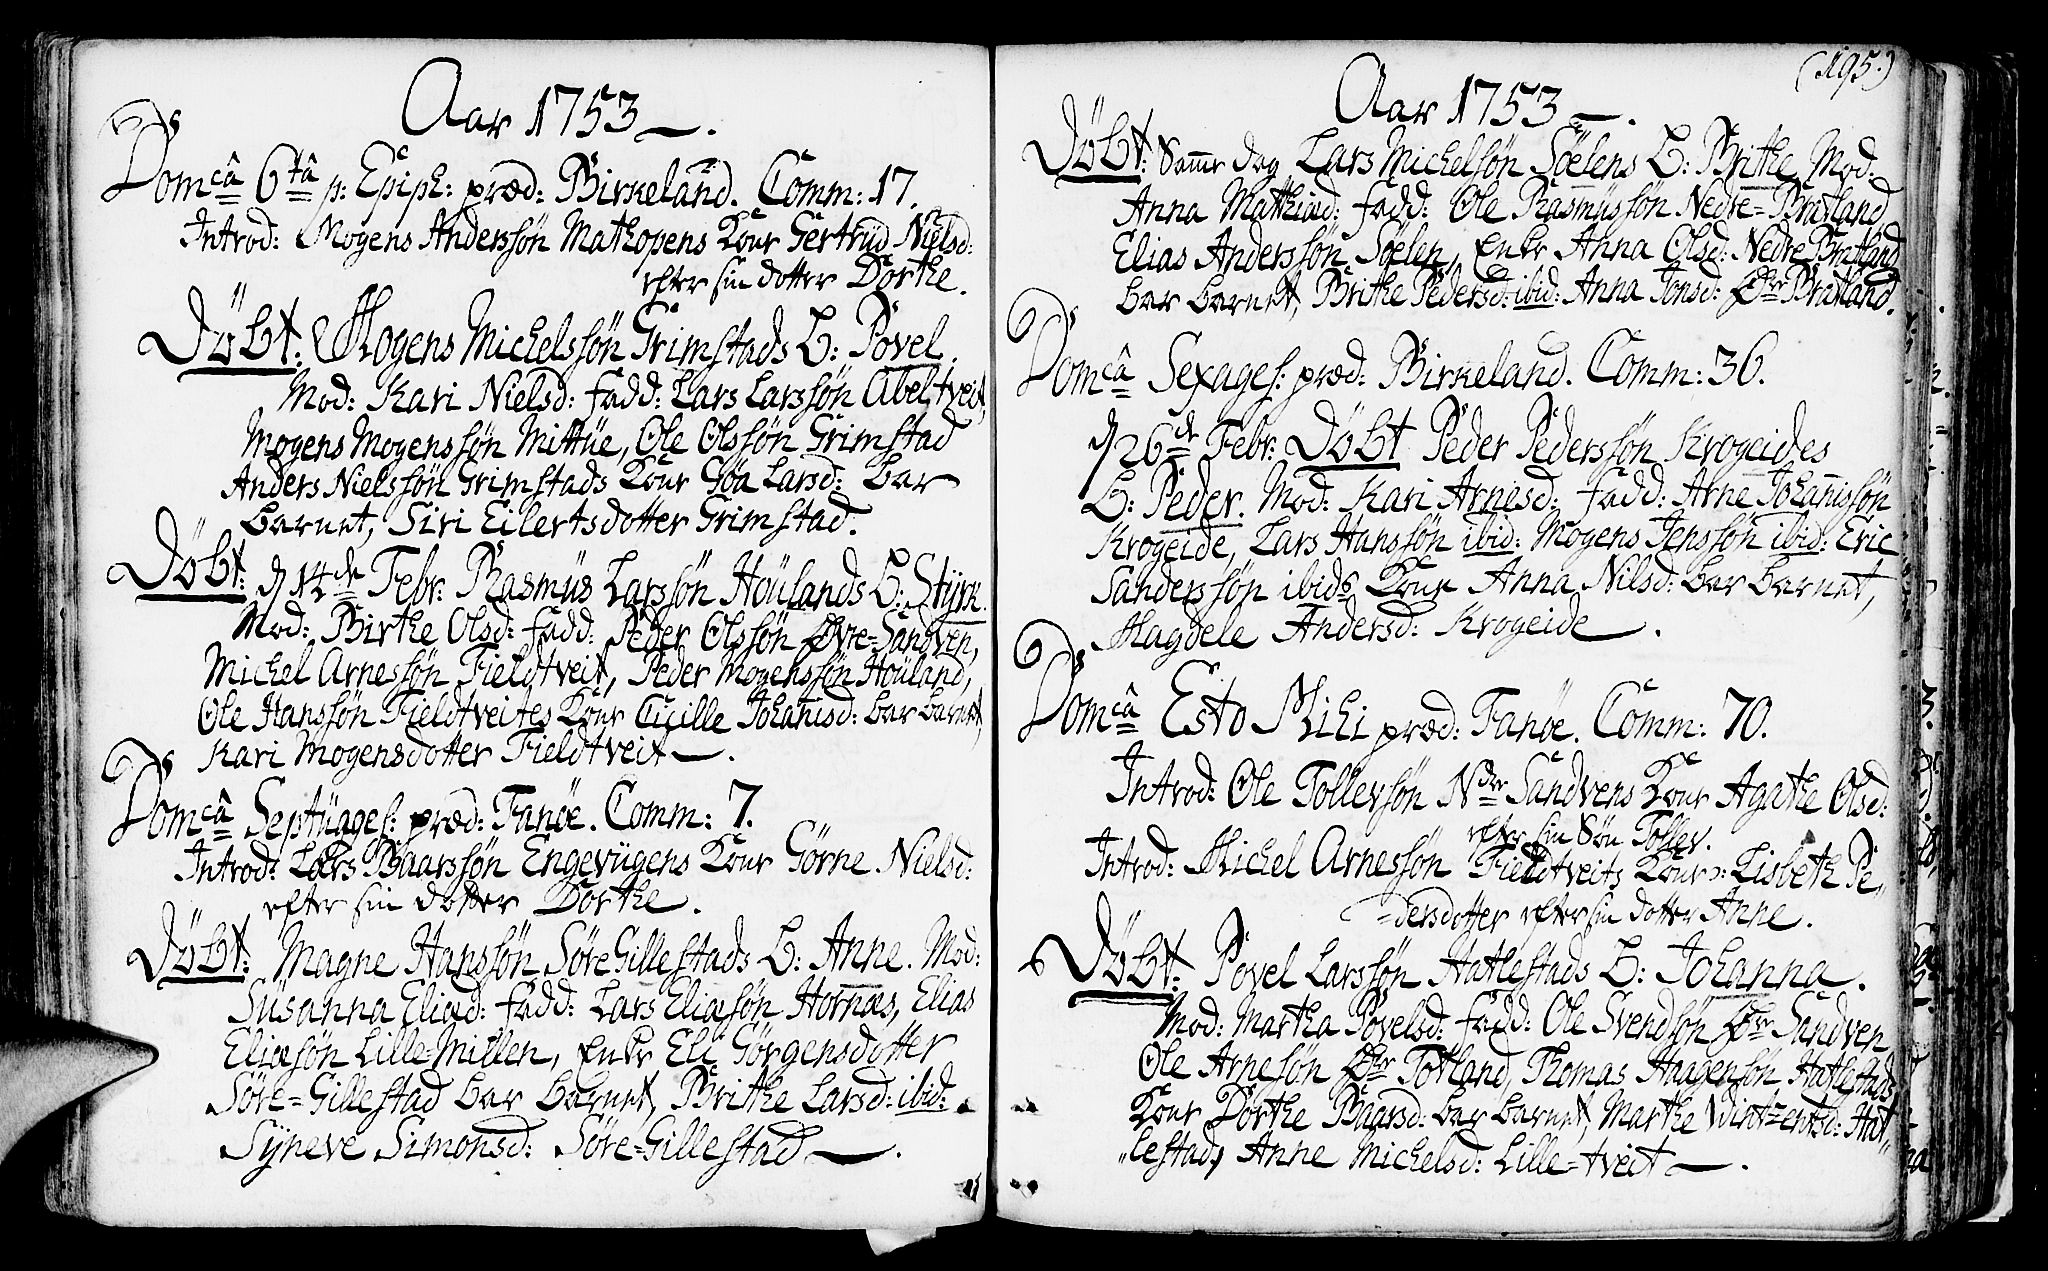 Aar 1753.
Domcâ 6tâ p: Epiph: præd: Birkeland. Comm: 17.
Introd: Mogens Anderssön Mathopens Kone Gertrud Nielsd:
efter sin dotter Dorthe.
Döbt: Mogens Michelssön Grimstads B: Povel.
Mod: Kari Nielsd: Fadd: Lars Larssön Abeltveit,
Mogens Mogenssön Mittüe, Ole Olssön Grimstad
Anders Nielssön Grimstads Kone Göa Larsd: bar
barnet, Siri Eilertsdotter Grimstad.
Döbt: d 14de Febr: Rasmüs Larssön Hoülands B: Styrk.
Mod: Birthe Olsd: Fadd: Peder Olssön Øvre=Sandven,
Michel Arnessön Fieldtveit, Peder Mogenssön Hoüland,
Ole Hanssön Fieldtveites Kone Cicille Johanisd: bar barnet,
Kari Mogensdotter Fieldtveit.
Domcâ Septüages: præd: Fanöe. Comm: 7.
Introd: Lars Baarssön Engevügens Kone Görne Nielsd:
efter sin dotter Dorthe.
Döbt: Magne Hanssön Söre Gillestads B: Anne. Mod:
Süsanna Eliæd: Fadd: Lars Eliæsön Hornæs, Elias
Eliæsön Lille=Millen, Enke Eli Görgensdotter
Söre=Gillestad bar barnet, Brithe Larsd: ibid:
Syneve Simonsd: Söre=Gillestad.
(195.)
Aar 1753.
Döbt: Samme dag Lars Michelsön Söelens B: Brithe Mod:
Anna Mathiæd: Fadd: Ole Rasmüssön Nedre=Bratland
Elias Anderssön Söelen, Enke Anna Olsd: Nedre Bratland
bar barnet, Brithe Pedersd: ibid: Anna Jonsd: Øfre Bratland.
Domcâ Sexages: præd: Birkeland. Comm: 36.
d 26de Febr: Döbt Peder Pederssön Krogeides
B: Peder. Mod: Kari Arnesd: Fadd: Arne Johanissön
Krogeide, Lars Hanssön ibid: Mogens Jenssön ibid: Eric
Sanderssön ibids Kone Anna Nilsd: bar barnet,
Magdele Andersd: Krogeide.
Domcâ Esto Mihi præd: Fanöe. Comm: 70.
Introd: Ole Tollevsön Ndre Sandvens Kone Agathe Olsd:
efter sin Sön Tollev.
Introd: Michel Arnessön Fieldtveits Kone: Lisbeth Pe,,
=dersdotter efter sin dotter Anne.
Döbt: Povel Larssön Hatlestads B: Johanna.
Mod: Martha Povelsd: Fadd: Ole Svendsön Øfre Sandven
Ole Arnesön Øfre Totland, Thomas Haagensön Hatlestads
Kone Dorthe Baarsd: bar barnet, Marthe Vintzentsd: Hat,,
,,lestad, Anne Michelsd: Lille=tveit.